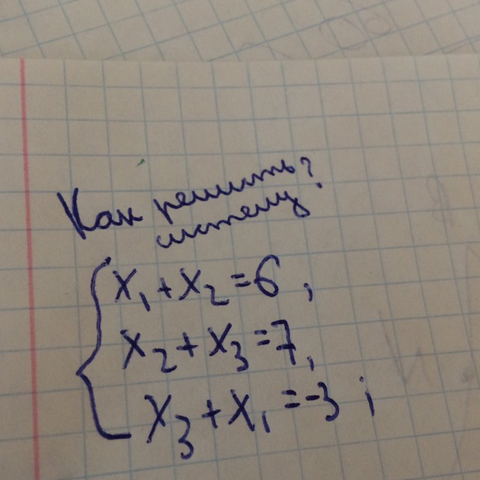 Как решить?
систему
x₁+x₂=6,
x₂+x₃=7,
x₃+x₁=-3;